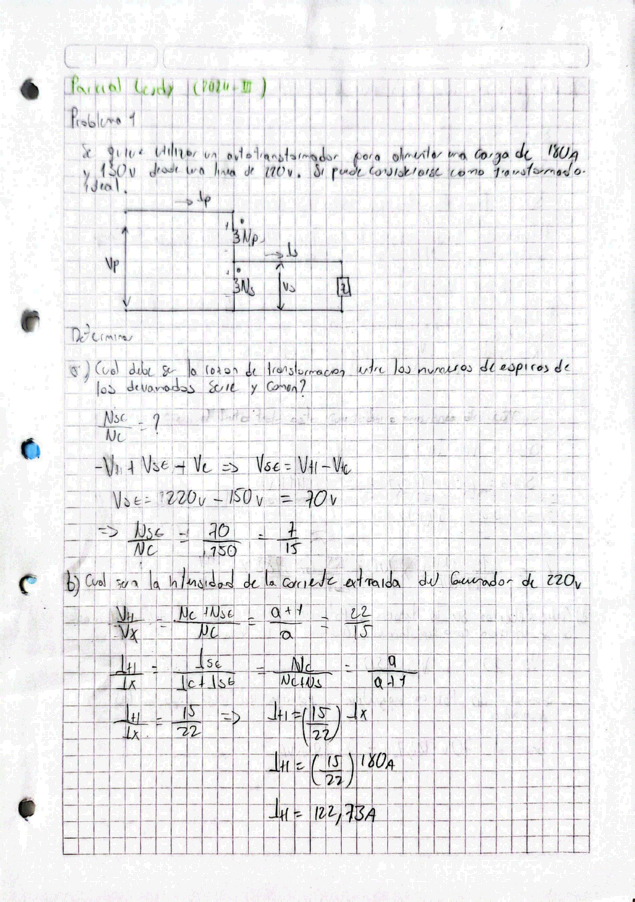 Parcial Leidy (2024-III)
Problema 1
Se quiere utilizar un autotransformador para alimentar una carga de 180A
y 150v desde una linea de 220v. Si puede considerarse como transformador
ideal.
Ip
Np
Is
Vp
Ns
Vs
Z
Determinar
a) Cual debe ser la razon de transformacion entre los numeros de espiras de
los devanados serie y comun?
NSE/NC = ?
-VH + VSE + VC => VSE = VH - VC
VSE = 220v - 150v = 70v
=> NSE/NC = 70/150 = 7/15
b) Cual sera la intensidad de la corriente extraida del Generador de 220v
VH/VX = NC+NSE/NC = a+1/a = 22/15
IH/IX = ISE/IC+ISE = NC/NC+NS = a/a+1
IH/IX = 15/22 => IH = (15/22) IX
IH = (15/22) 180A
IH = 122,73A